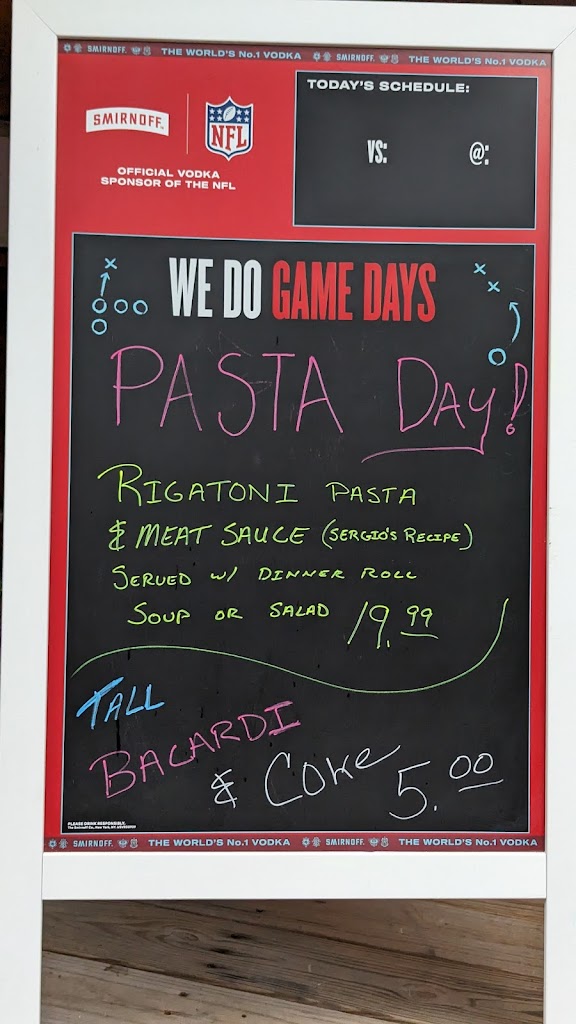 SMIRNOFF. THE WORLD'S No.1 VODKA SMIRNOFF. THE WORLD'S No.1 VODKA
TODAY'S SCHEDULE:
VS: @:
SMIRNOFF NFL
OFFICIAL VODKA
SPONSOR OF THE NFL
WE DO GAME DAYS
PASTA DAY!
RIGATONI PASTA
& MEAT SAUCE (SERGIO'S RECIPE)
SERVED W/ DINNER ROLL
SOUP OR SALAD 19.99
TALL
BACARDI
& COKE 5.00
PLEASE DRINK RESPONSIBLY.
The Smirnoff Co., New York, NY.
SMIRNOFF. THE WORLD'S No.1 VODKA SMIRNOFF. THE WORLD'S No.1 VODKA